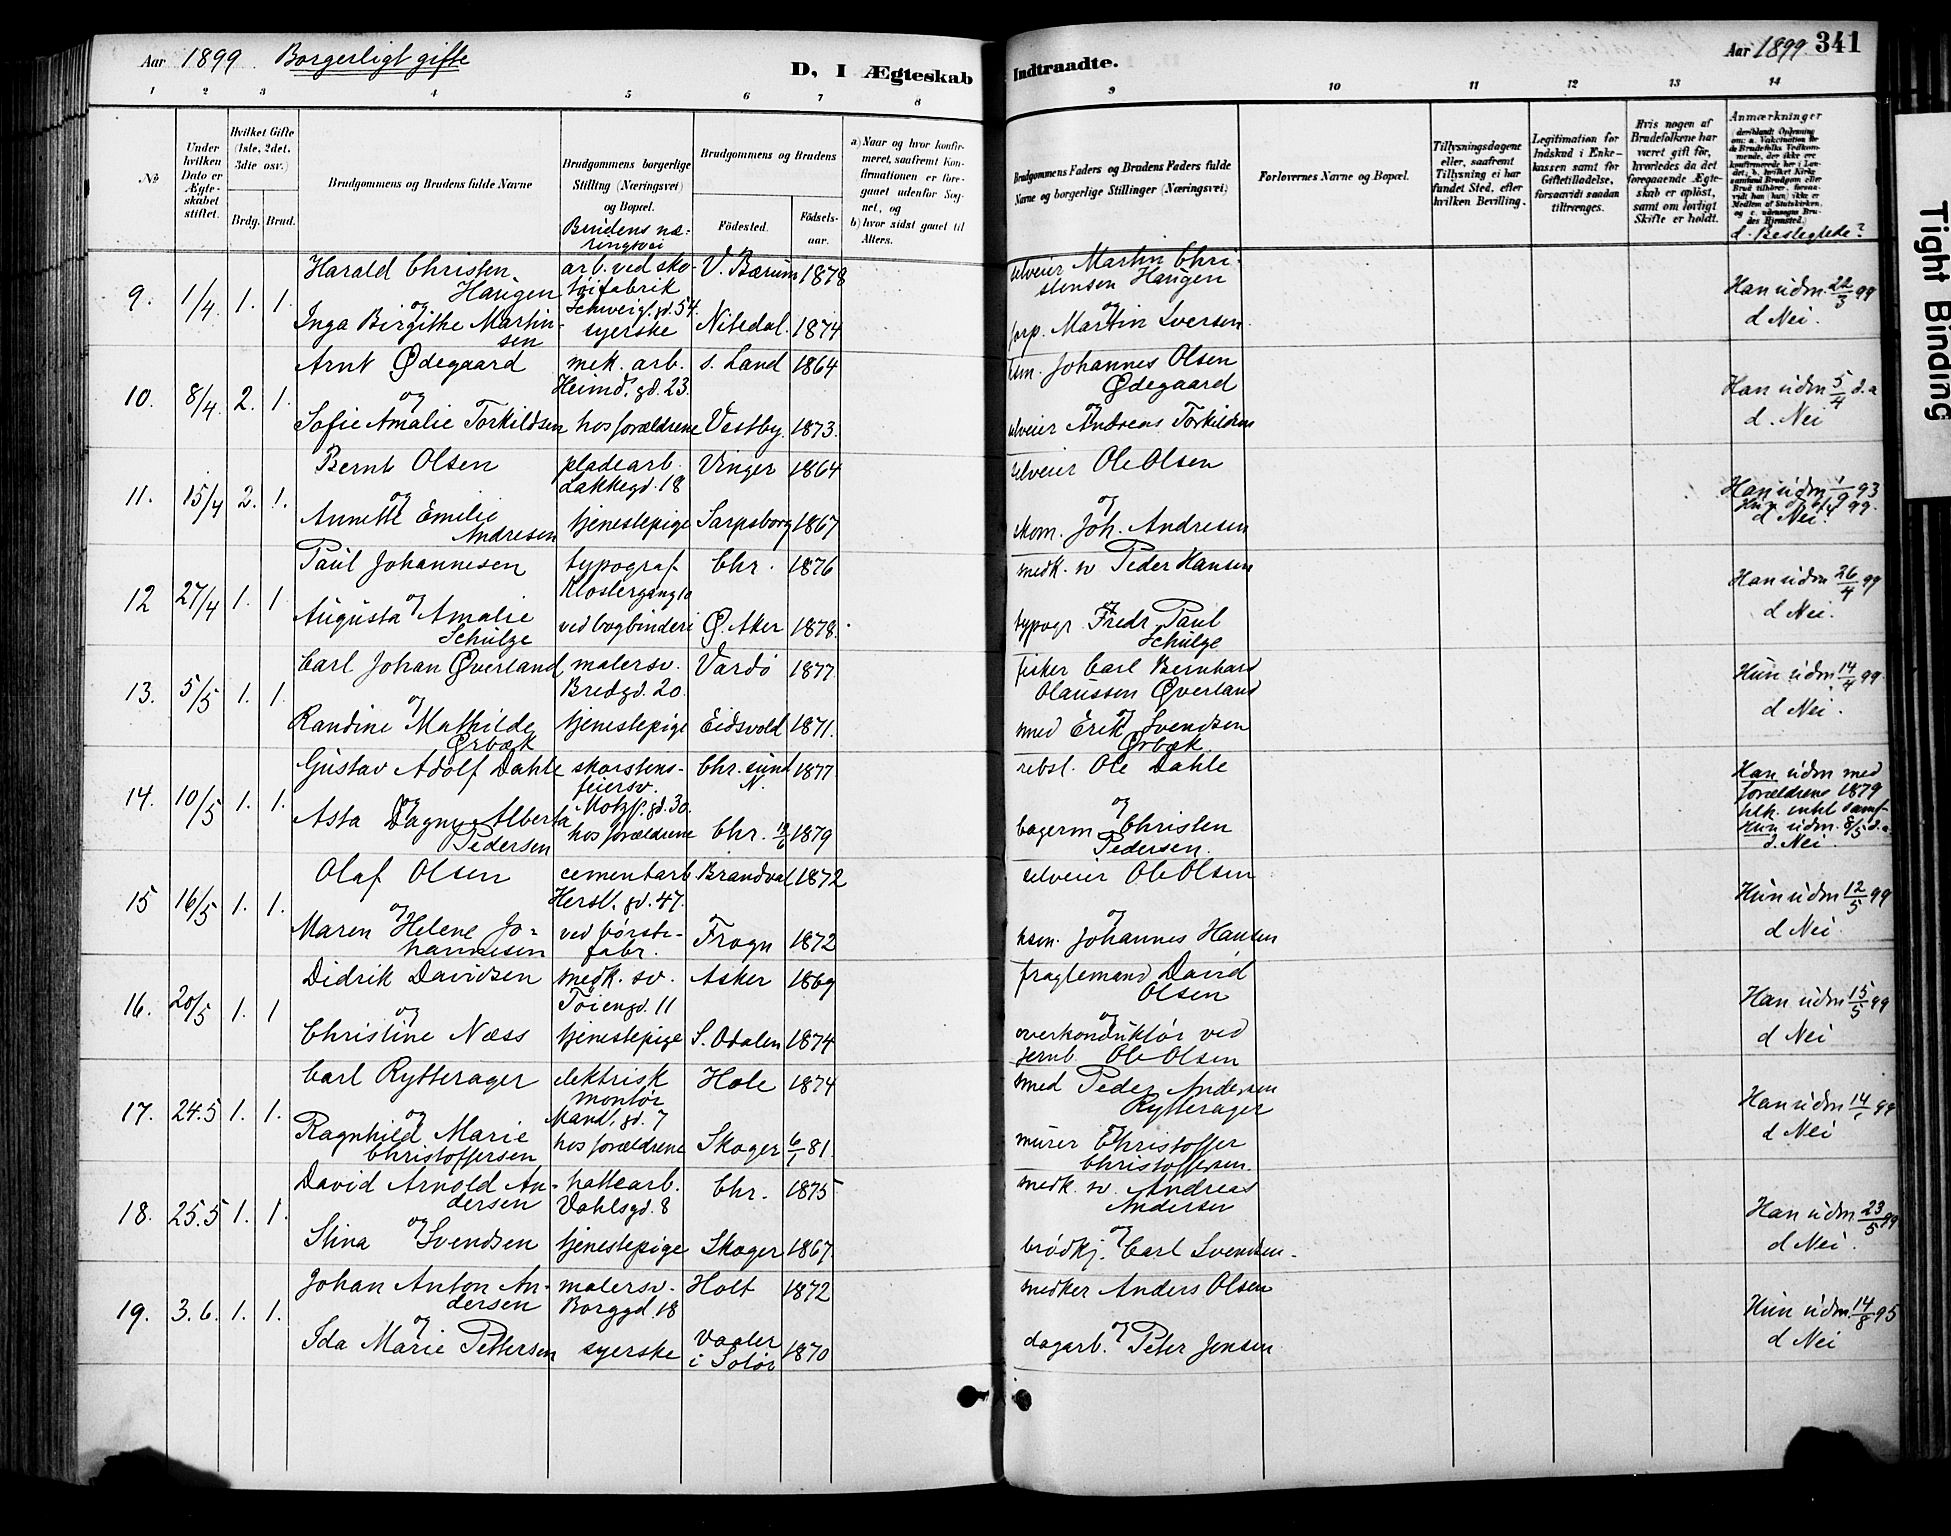 Aar 1899. Borgerligt gifte
D, I Ægteskab Indtraadte.
Aar 1899. 341
1 2 3 4 5 6 7 8 9 10 11 12 13 14
No
Under hvilken Dato er Ægteskabet stiftet.
Hvilket Gifte (1ste, 2det, 3die osv.)
Brdg. Brud.
Brudgommens og Brudens fulde Navne
Brudgommens borgerlige Stilling (Næringsvei) og Bopæl.
Brudens næringsvei
Brudgommens og Brudens
Fødested. Fødselsaar.
a) Naar og hvor konfirmeret, saafremt Konfirmationen er foregaaet udenfor Sognet, og
b) hvor sidst gaaet til Alters.
Brudgommens Faders og Brudens Faders fulde Navne og borgerlige Stillinger (Næringsvei)
Forlovernes Navne og Bopæl.
Tillysningsdagene eller, saafremt Tillysning ei har fundet Sted, efter hvilken Bevilling.
Legitimation for Indskud i Enkekassen samt for Giftetilladelse, forsaavidt saadan tiltrænges.
Hvis nogen af Brudefolkene har været gift før, hvorledes da det foregaaende Ægteskab er opløst, samt om lovligt Skifte er holdt.
Anmærkninger
d. Beslegtede?
9. 1/4. 1. 1.
Harald Christen Haugen
arb. ved skotøifabrik
Schweig. gd. 54.
V. Bærum 1878
selveier Martin Christensen Haugen
Han udm. 22/3 99
og
Inga Birgithe Martinsen
syerske Nitedal. 1874
og
Martin Iversen
d Nei.
10. 8/4. 2. 1.
Arnt Ødegaard
mek. arb.
Heimd. gd. 23.
s. Land 1864
hsm. Johannes Olsen Ødegaard
Han udm 5/4 d.a
og
Sofie Amalie Torkildsen
hos forældrene Vestby. 1873.
og
selveier Andreas Torkildsen
d. Nei
11. 15/4 2. 1.
Bernt Olsen
pladearb.
Lakkegd. 18
Vinger 1864
selveier Ole Olsen
Han udm 1/9 93
og
Annette Emilie Andresen
tjenestepige Sarpsborg 1867
og
skom. Joh. Andresen
d Nei.
12 27/4 1. 1
Paul Johannesen
typograf
Klostergang 10
Chr. 1876
snedk. sv Peder Hansen
Han udm 26/4 99
og
Augusta Amalie Schulze
ved bogbinderi Ø. Aker 1878.
og
typogr. Fredr. Paul Schulze
d Nei.
13. 5/5 1. 1.
Carl Johan Øverland
malersv.
Bredgd. 20.
Vardø 1877.
fisker Carl Bernhard Olaussen Øverland
Hun udm 14/4 99.
og
Randine Mathilde Ørbæk
tjenestepige Eidsvold 1871.
og
smed Erik Svendsen Ørbæk
d Nei.
14. 10/5 1. 1.
Gustav Adolf Dahle
skorstensfeiersv.
Motzf. gd. 30.
Chr.sund N. 1877
rebsl. Ole Dahle
Han udm med
forældrene 1879
og
Asta Dagny Alberta Pedersen
hos forældrene Chr. 1879
og
bagerm Christen Pedersen.
Hun udm. 8/5 d.a.
d. Nei.
15 16/5 1. 1.
Olaf Olsen
cementarb
Hersl. gd. 47.
Brandval 1872
selveier Ole Olsen
Hun udm 12/5 99
og
Maren Helene Johannesen
ved børstefabr.
Frogn 1872
og
hsm. Johannes Hansen
d Nei
16. 20/5 1. 1
Didrik Davidsen
snedk. sv.
Tøiengd. 11
Asker 1869
fragtemand David Olsen
Han udm 15/5 99
og
Christine Næss
tjenestepige S. Odalen 1874
og
overkonduktør ved jernb. Ole Olsen
d Nei
17. 24.5 1. 1.
Carl Rytterager
elektrisk montør
Mandl. gd. 7
Hole 1874
smed Peder Andersen Rytterager
Han udm 14/ 99
og
Ragnhild Marie Christoffersen
hos forældrene Skoger 6/1 81.
og
murer Christoffer Christoffersen.
d Nei
18. 25.5 1. 1.
David Arnold Andersen
hattearb.
Vahlsgd. 8
Chr. 1875
snedk. sv. Andreas Andersen
Han udm 23/5 99
og
Stina Svendsen
tjenestepige Skoger 1867
og
brødkj. Carl Svendsen.
d Nei.
19. 3.6. 1. 1.
Johan Anton Andersen
malersv.
Borggd. 18
Holt 1872
snedker Anders Olsen
Hun udm. 14/8 95
og
Ida Marie Pettersen
syerske Vaaler i Solør 1870
og
dagarb. Peter Jensen
d Nei
Tight Binding